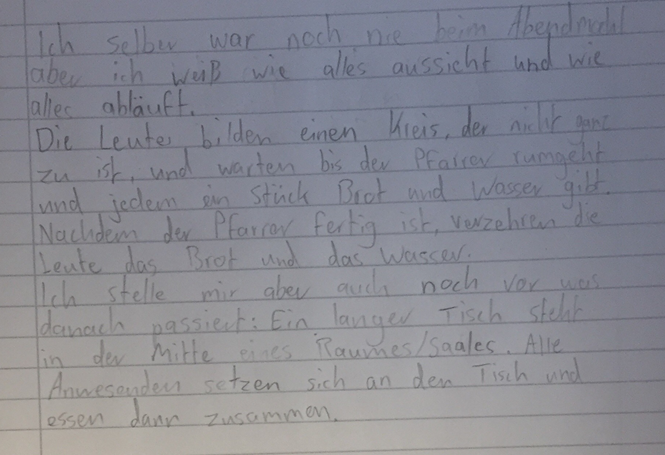 Ich selber war noch nie beim Abendmahl
aber ich weiß wie alles aussicht und wie
alles abläuft.
Die Leute bilden einen Kreis, der nicht ganz
zu ist, und warten bis der Pfarrer rumgeht
und jedem ein Stück Brot und Wasser gibt.
Nachdem der Pfarrer fertig ist, verzehren die
Leute das Brot und das Wasser.
Ich stelle mir aber auch noch vor was
danach passiert: Ein langer Tisch steht
in der Mitte eines Raumes/Saales. Alle
Anwesenden setzen sich an den Tisch und
essen dann zusammen.